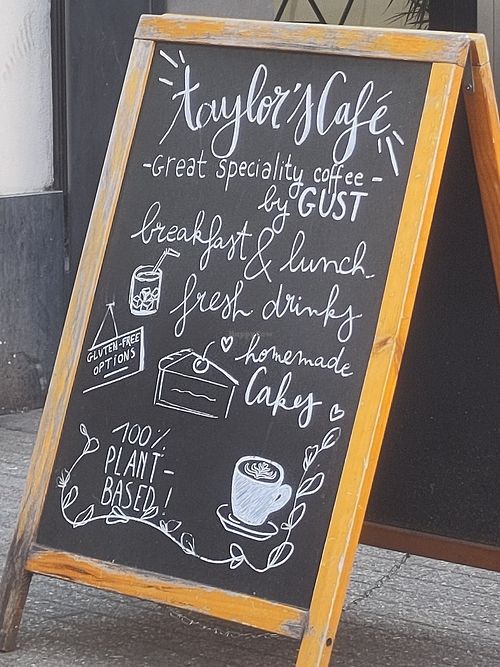 taylor's Café
-Great speciality coffee-
by GUST
breakfast & lunch
fresh drinks
GLUTEN-FREE
OPTIONS
homemade
Cakes
100%
PLANT-
BASED!